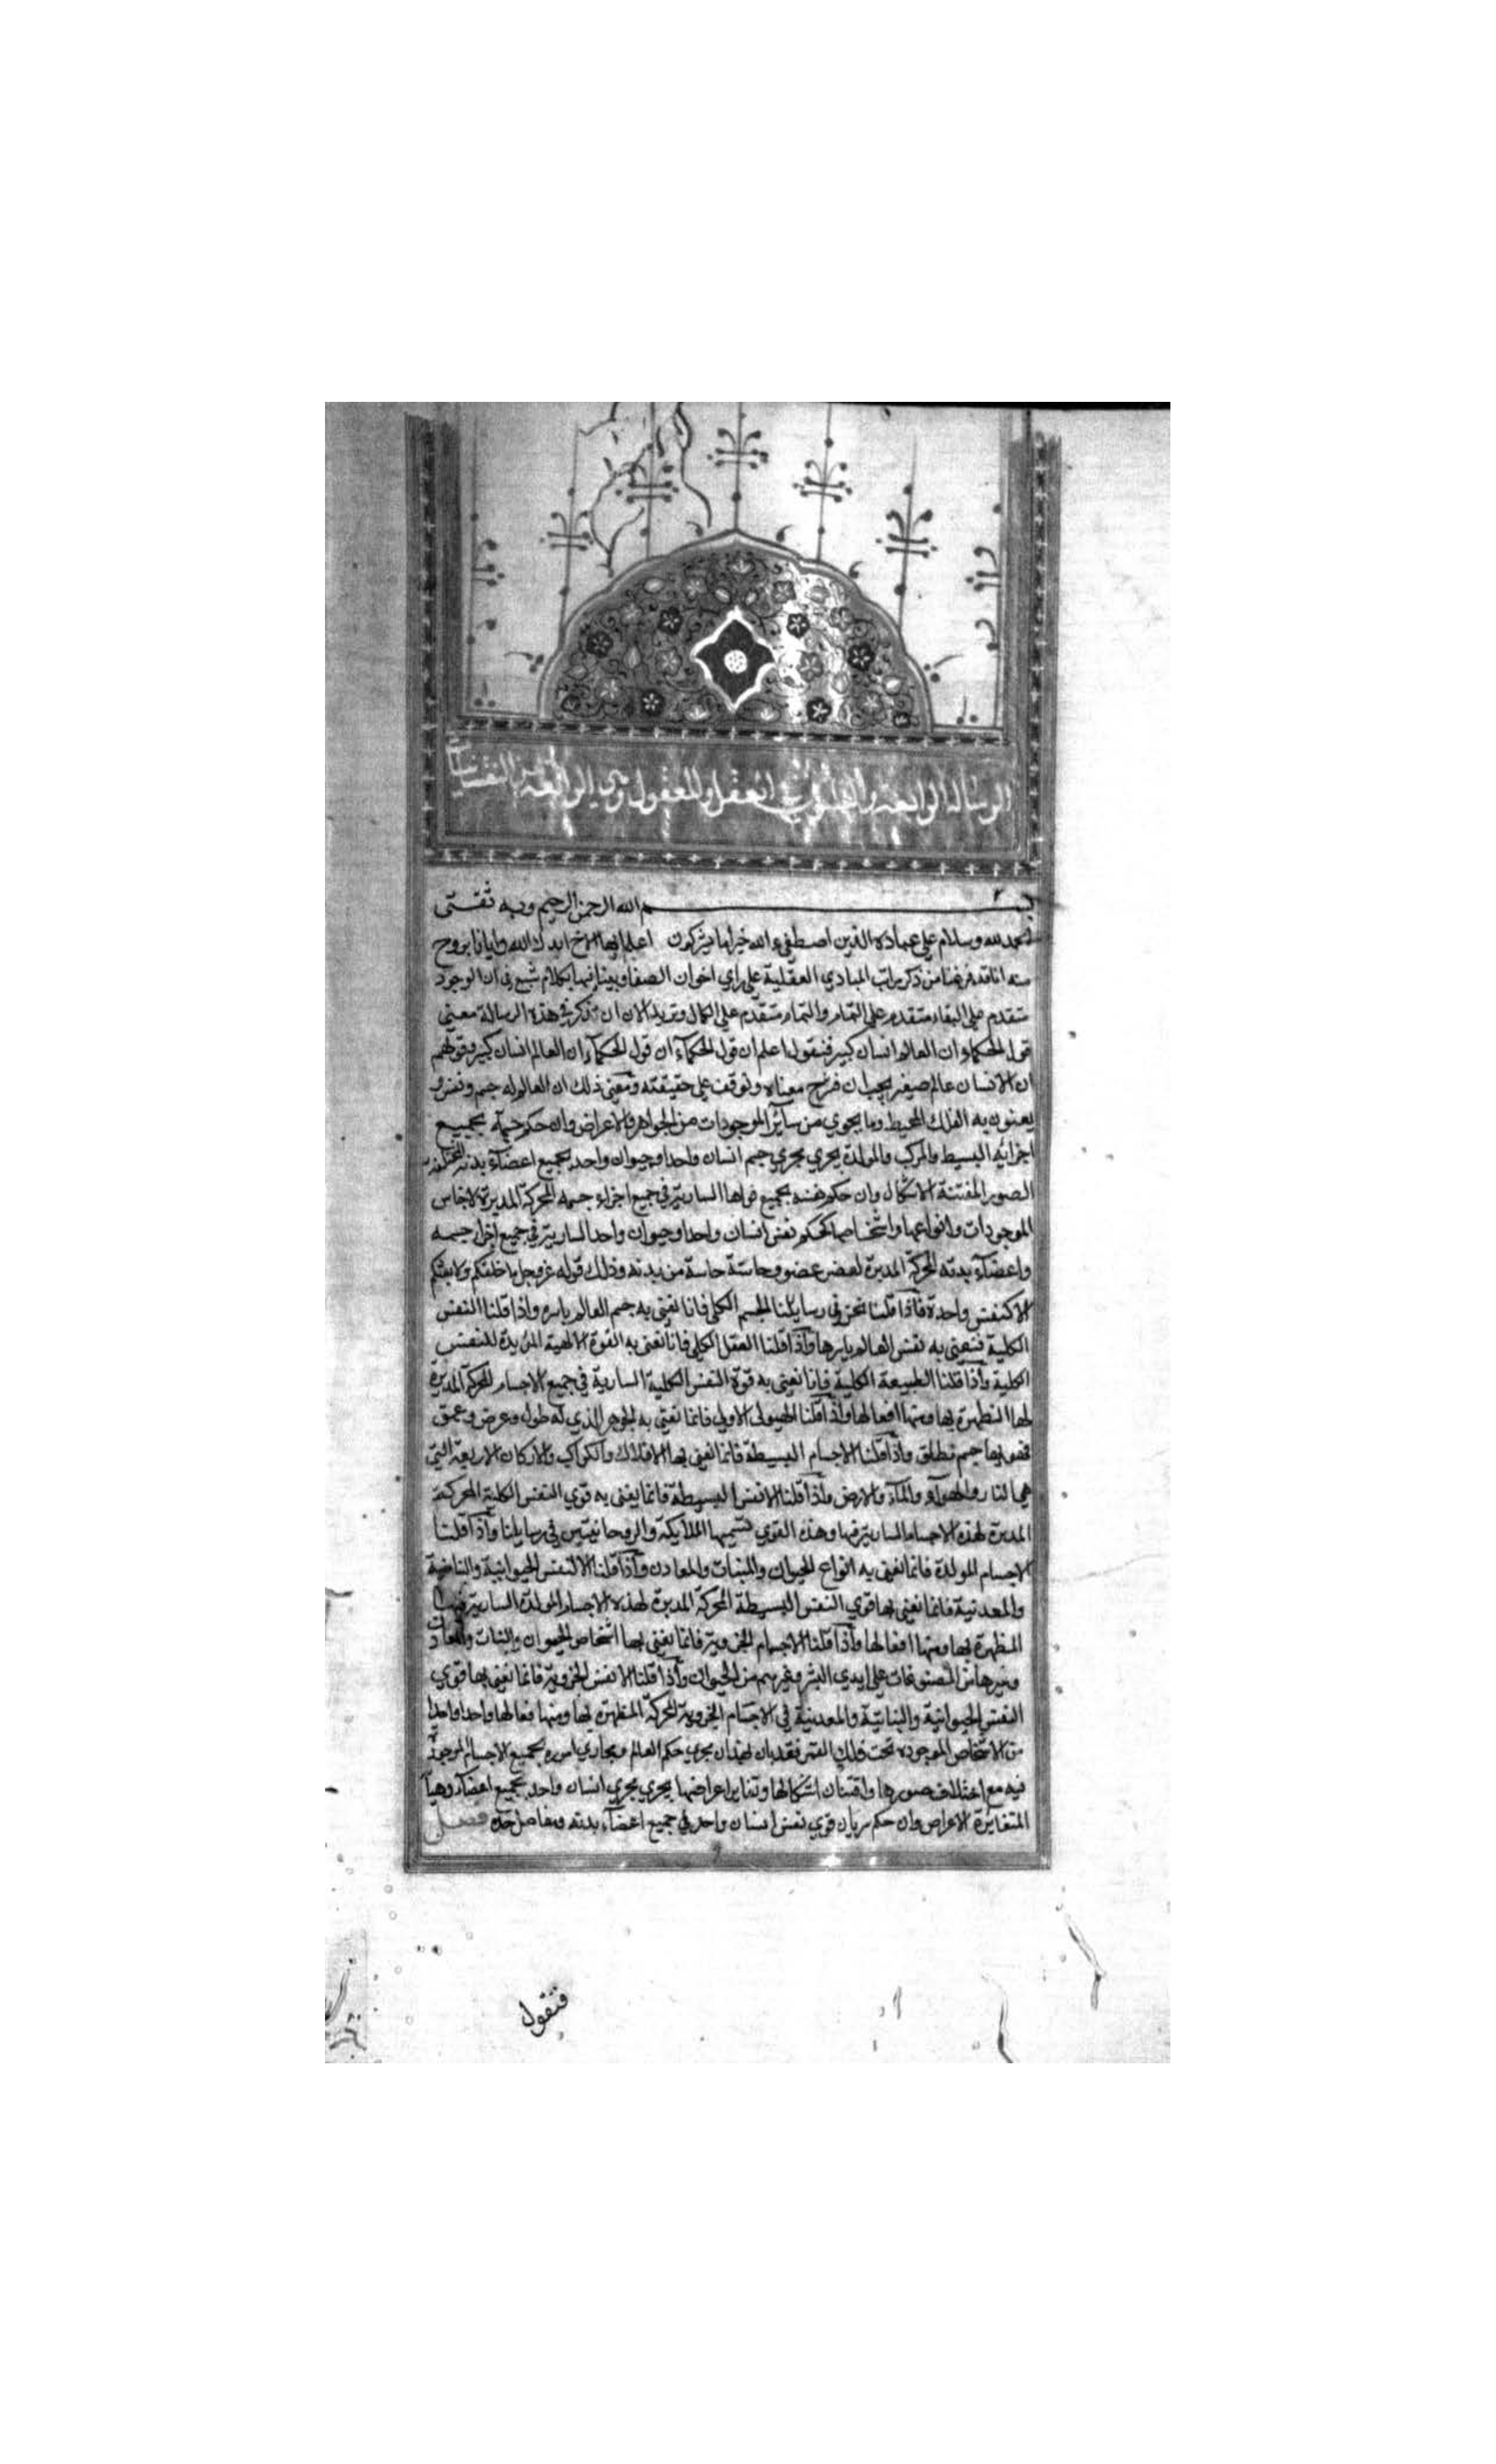 الرسالة الرابعة والثلثون في العقل والمعقول وهي الرابعة من النفسانيات
بسم الله الرحمن الرحيم وبه ثقتي
الحمد لله وسلام علي عباده الذين اصطفيء الله خير اما يشركون اعلم ايها الاخ ايدك الله وايانا بروح
منه انا قد فرغنا من ذكر مراتب المبادي العقلية علي راي اخوان الصفا وبينا فيها بكلام شبع في ان الوجود
متقدم علي البقاء متقدم علي التمام والتمام متقدم علي الكمال ونريد الان ان نذكر في هذه الرسالة معني
قول الحكماء ان العالم انسان كبير فنقول اعلم ان قول الحكمآء ان قول الحكمآء ان العالم انسان كبير وقولهم
ان الانسان عالم صغير يجب ان معناه ونوقف علي حقيقته ومعني ذلك ان العالم له جسم ونفس و
يعنون به الفلك المحيط وما يحوي من سآئر الموجودات من الجواهر والاعراض وان حكم جسمه بجميع
اجزائه البسيط والمركب والمولدة يجري مجري جسم انسان واحد او حيوان واحد بجميع اعضآء بدنه
الصور المفتنة الاشكال وان حكم نفسه بجميع قواها السارية في جميع اجزاء جسمه المحركة المديرة لاجناس
الموجودات وانواعها واشخاصها كحكم نفس انسان واحد او حيوان واحد السارية في جميع اجزاء جسمه
واعضآء بدنه المحركة المدبرة لعضو عضو وحاسة حاسة من بدنه وذلك قوله عز وجل ما خلقكم ولا بعثكم
الا كنفس واحدة فاذا قلنا نحن في رسايلنا الجسم الكلي فانا نعني به جسم العالم باسره واذا قلنا النفس
الكلية فنعني به نفس العالم باسرها واذا قلنا العقل الكلي فانا نعني به القوة الالهية المؤيدة للنفس
الكلية واذا قلنا الطبيعة الكلية فانا نعني به قوة النفس الكلية السارية في جميع الاجسام المحركة المدبرة
لها المظهرة بها ومنها افعالها واذا قلنا الهيولي الاولي فانما نعني به الجوهر الذي له طول وعرض وعمق
فهو بها جسم مطلق واذا قلنا الاجسام البسيطة فانما نعني بها الافلاك والكواكب والاركان الاربعة التي
هي النار والهوآء والمآء والارض واذا قلنا الانفس البسيطة فانما يعني به قوي النفس الكلية المحركة
المدبرة لهذه الاجسام السارية فيها وهذه القوي نسميها الملايكة والروحانيين في رسايلنا واذا قلنا
الاجسام المولدة فانما نعني به انواع الحيوان والنبات والمعادن واذا قلنا الانفس الحيوانية والنامية
والمعدنية فانما نعني بها قوي النفس البسيطة المحركة المدبرة لهذه الاجسام المولدة السارية فيها
المظهرة بها ومنها افعالها واذا قلنا الاجسام الجزوية فانما نعني بها اشخاص الحيوان والنبات والمعادن
وغيرها من المصنوعات علي ايدي البشر وغيرهم من الحيوان واذا قلنا الانفس الجزوية فانما نعني بها قوي
النفس الحيوانية والنباتية والمعدنية في الاجسام الجزوية المحركة المظهرة لها ومنها فعالها واحدا واحدا
من الاشخاص الموجوده تحت فلك القمر فقد بان بهذا ان مجري حكم العالم ومجاري اموره بجميع الاجسام الموجودة
فيه مع اختلاف صورها وافتنان اشكالها وتغاير اعراضها يجري مجري انسان واحد بجميع اعضآء
المتغايرة الاعراض وان حكم سريان قوي نفس انسان واحد في جميع اعضآء بدنه ومفاصل جسده فصل
فنقول